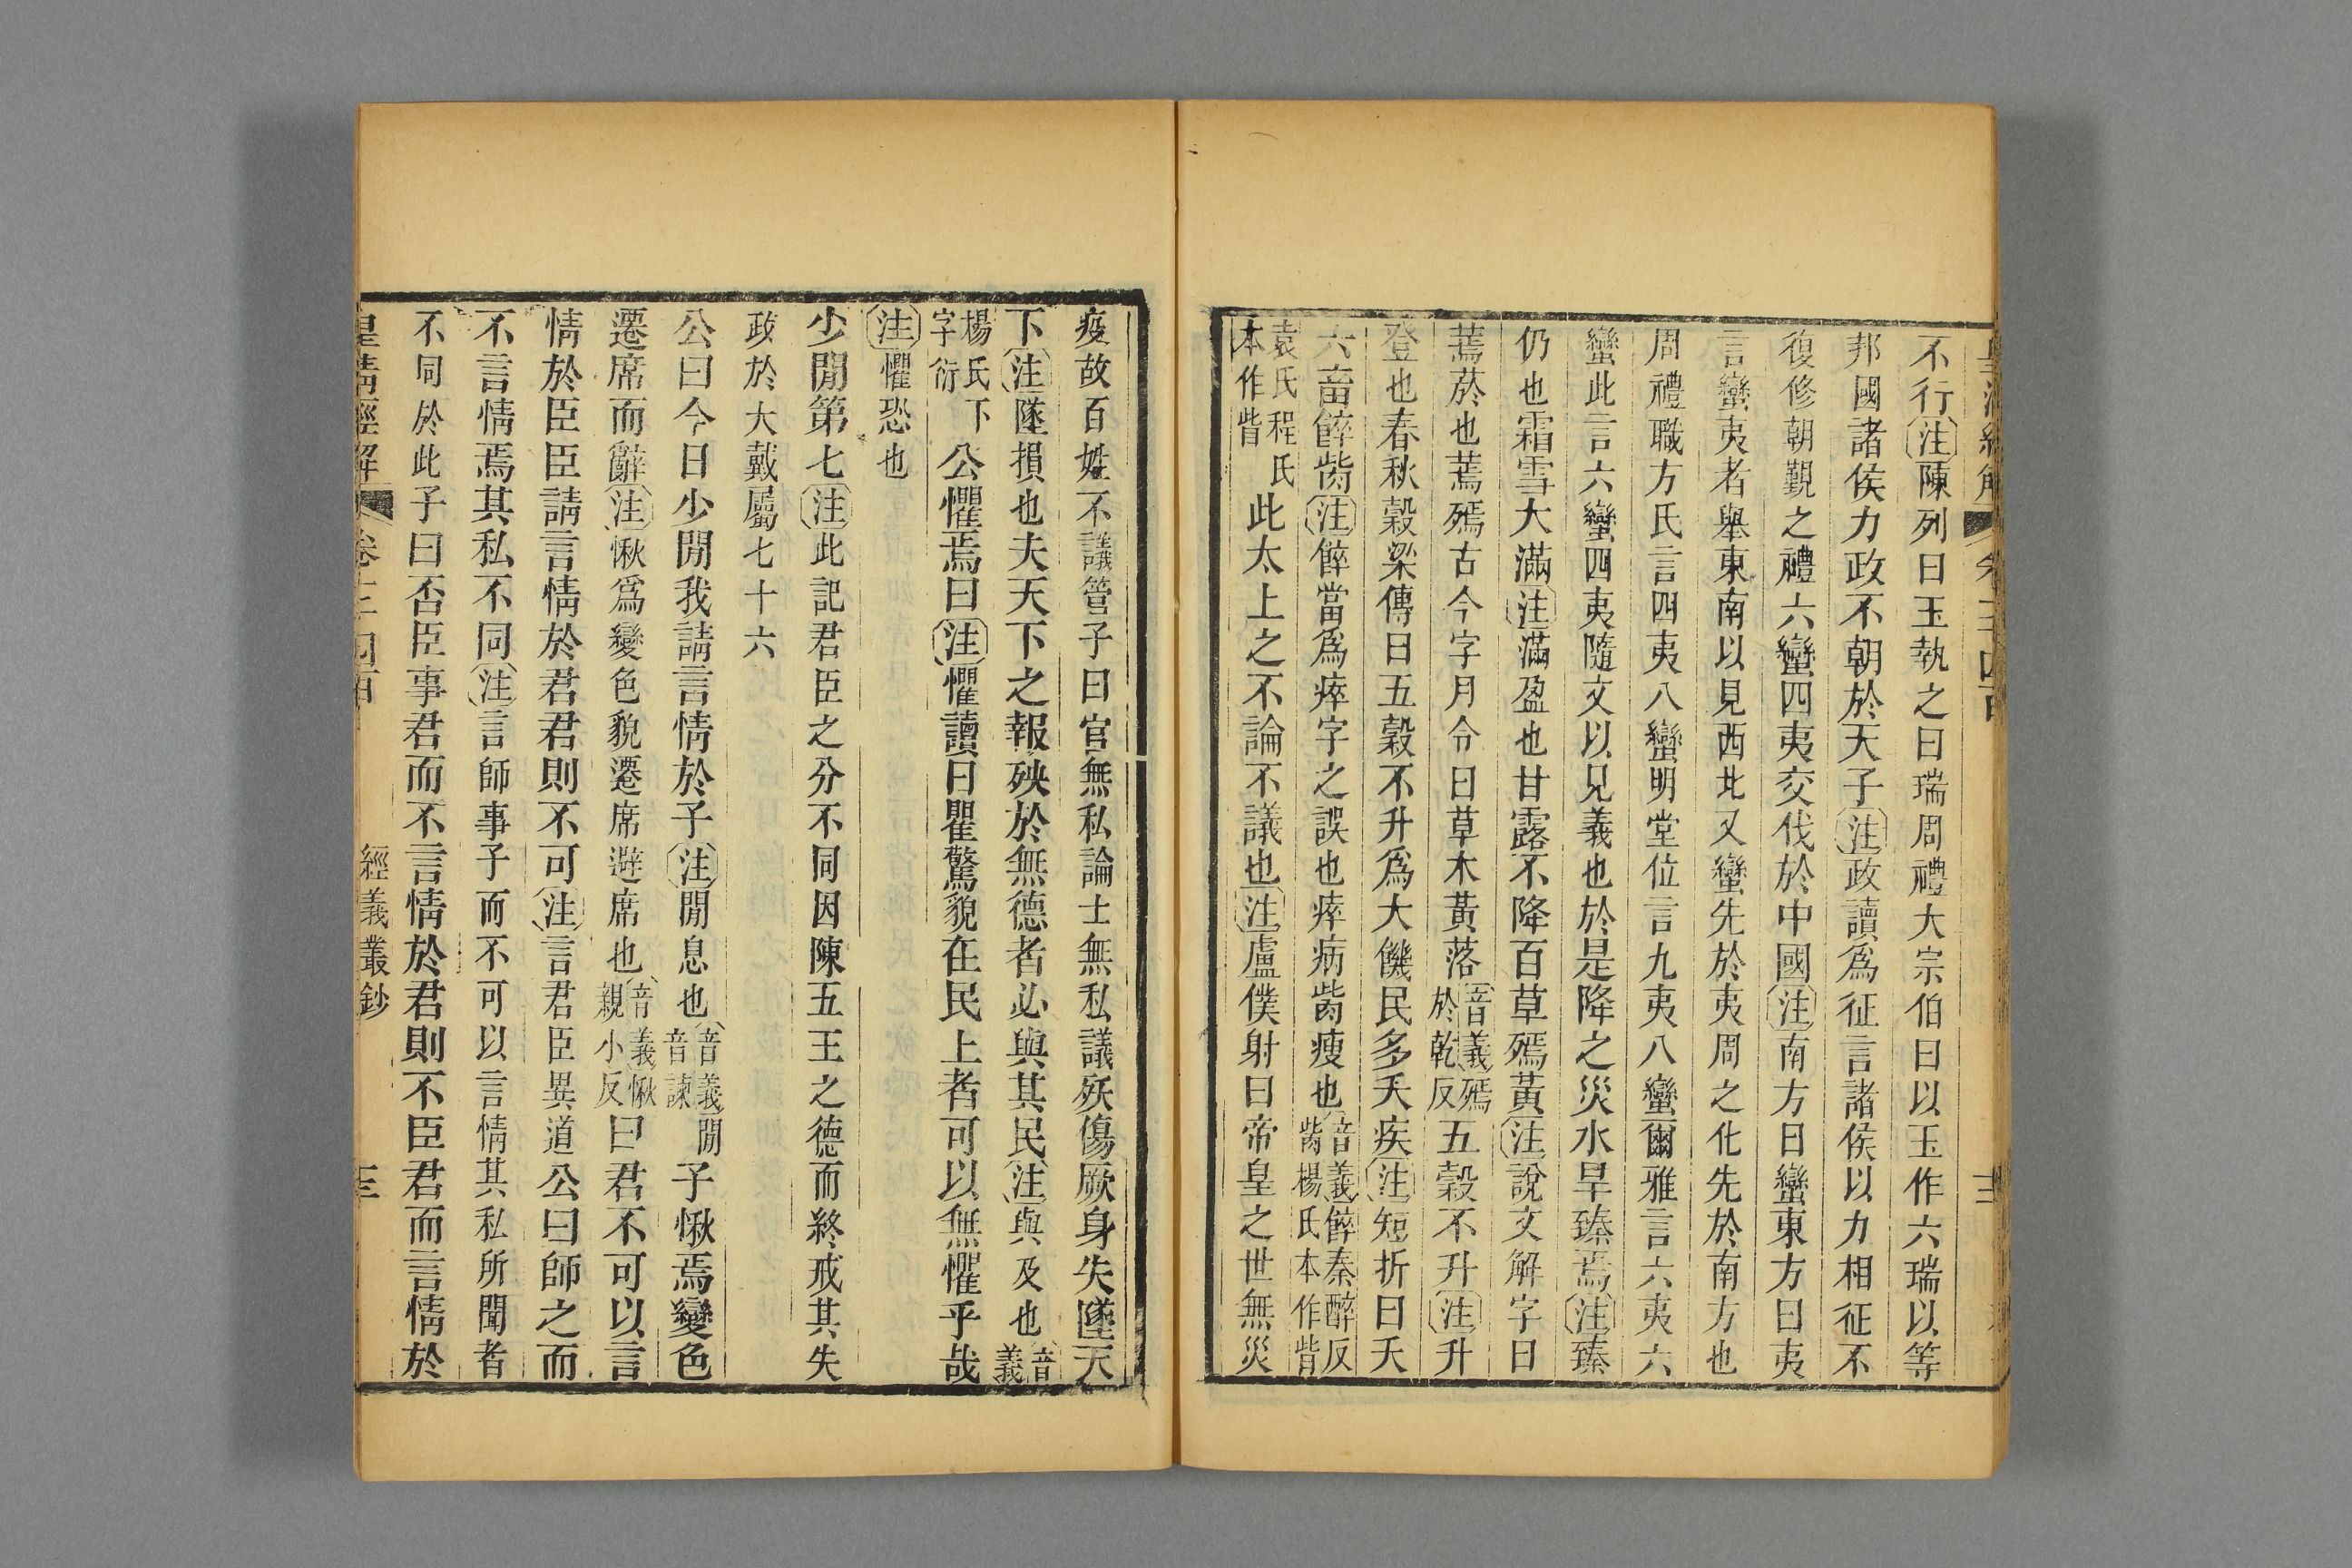 不行注陳列曰玉執之曰瑞周禮大宗伯曰以玉作六瑞以等
邦國諸侯力政不朝於天子注政讀爲征言諸侯以力相征不
復修朝覲之禮六蠻四夷交伐於中國注南方曰蠻東方曰夷
言蠻夷者舉東南以見西北又蠻先於夷周之化先於南方也
周禮職方氏言四夷八蠻明堂位言九夷八蠻爾雅言六夷六
蠻此言六蠻四夷隨文以見義也於是降之災水旱臻焉注臻
仍也霜雪大滿注滿盈也甘露不降百草殣黃注說文解字曰
蔫菸也蔫殣古今字月令曰草木黃落音義殣於乾反五穀不升注升
登也春秋穀梁傳曰五穀不升爲大饑民多夭疾注短折曰夭
六畜䬽胔注䬽當爲瘁字之誤也瘁病胔瘦也音義䬽秦醉反胔楊氏本作眥
袁氏程氏本作眥此太上之不論不議也注盧僕射曰帝皇之世無災
疫故百姓不議管子曰官無私論士無私議殀傷厥身失墜天
下注墜損也夫天下之報殃於無德者必與其民注與及也音義
楊氏下字衍公懼焉曰注懼讀曰瞿驚貌在民上者可以無懼乎哉
注懼恐也
少閒第七注此記君臣之分不同因陳五王之德而終戒其失
政於大戴屬七十六
公曰今日少閒我請言情於子注閒息也音義閒音諫子愀焉變色
遷席而辭注愀爲變色貌遷席避席也音義愀親小反曰君不可以言
情於臣臣請言情於君君則不可注言君臣異道公曰師之而
不言情焉其私不同注言師事子而不可以言情其私所聞者
不同於此子曰否臣事君而不言情於君則不臣君而言情於
皇清經解 卷 經義叢鈔